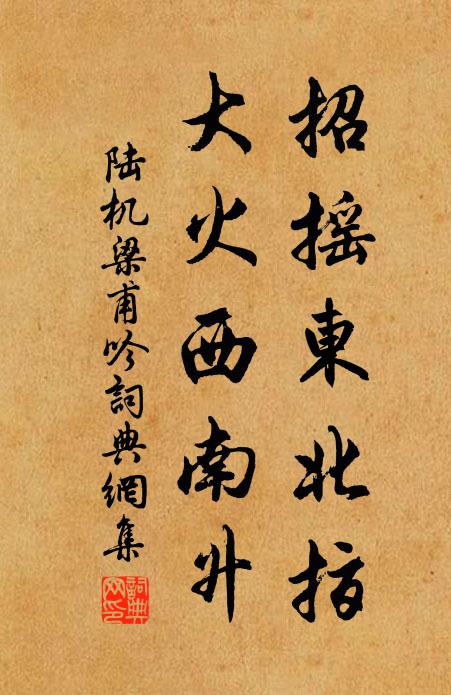 招摇東北指
大火西南升
陆机梁甫吟詞典網集
詞典網印